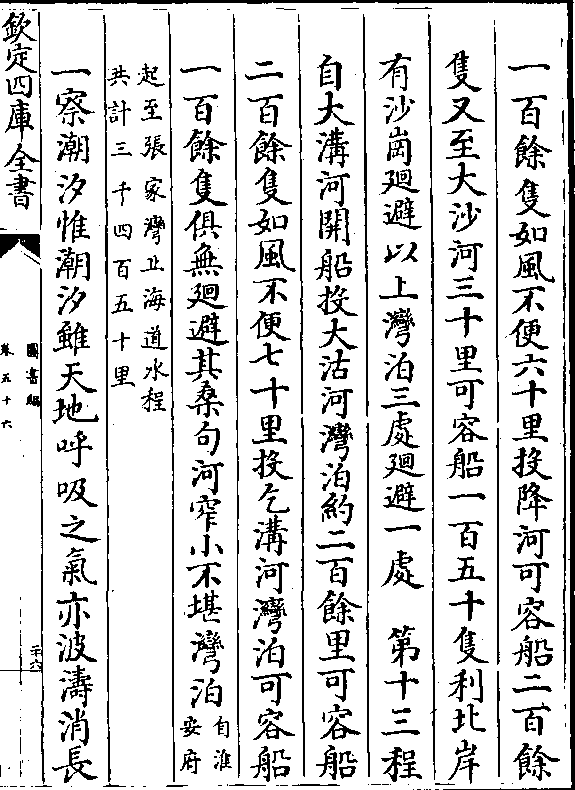 一百餘隻如風不便六十里投降河可容船二百餘
隻又至大沙河三十里可容船一百五十隻利北岸
有沙崗廻避以上灣泊三處廻避一處　第十三程
自大溝河開船投大沽河灣泊約二百餘里可容船
二百餘隻如風不便七十里投乞溝河灣泊可容船
一百餘隻俱無廻避其桑句河窄小不堪灣泊自淮
安府
起至張家灣止海道水程
共計三千四百五十里
一察潮汐惟潮汐雖天地呼吸之氣亦波濤消長
欽定四庫全書
圖書編
卷五十六